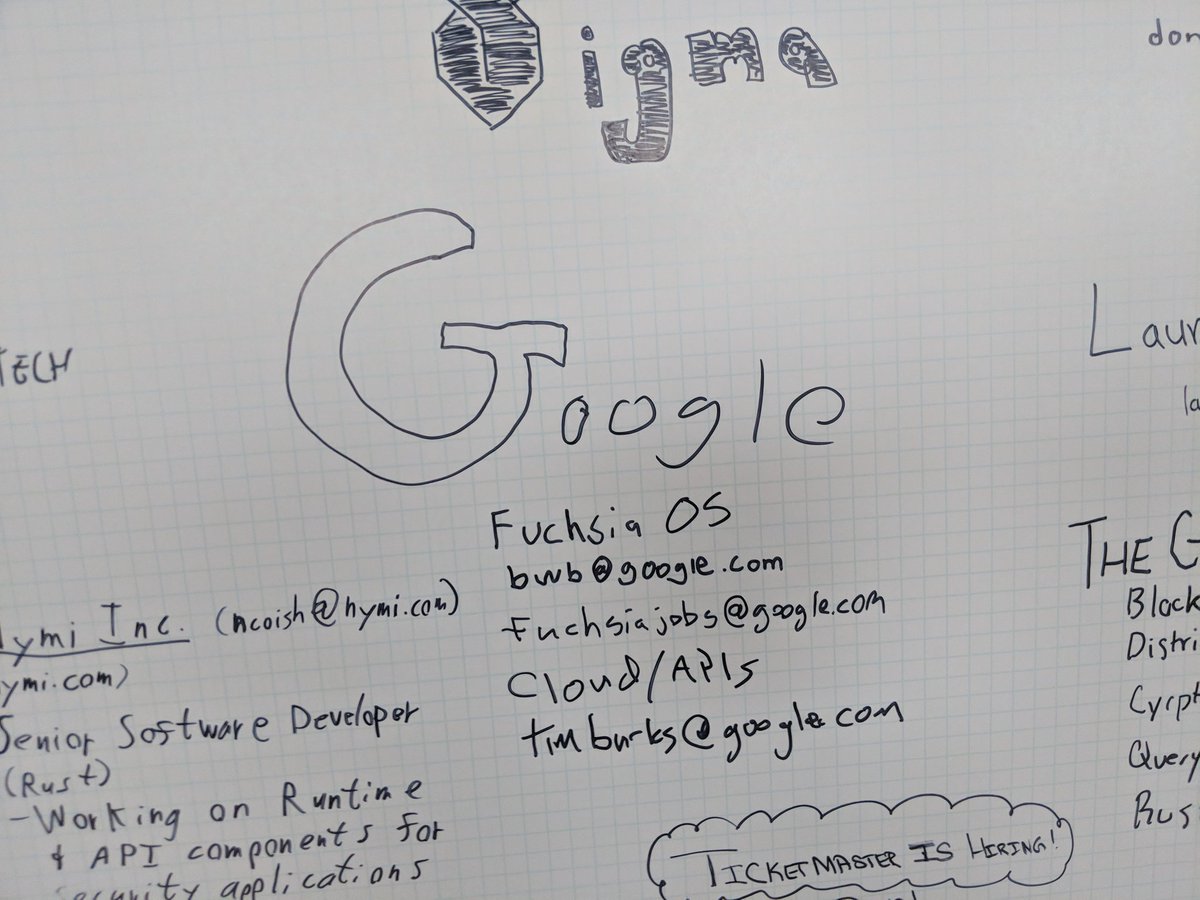 igma
don
Google
TECH
Laur
la
Fuchsia OS
bwb@google.com
fuchsiajobs@google.com
Cloud/APIs
timburks@google.com
Nymi Inc. (ncoish@nymi.com)
ymi.com)
Senior Software Developer
(Rust)
-Working on Runtime
& API components for
security applications
THE G
Block
Distri
Cyrpt
Query
Rus
TICKETMASTER IS HIRING!